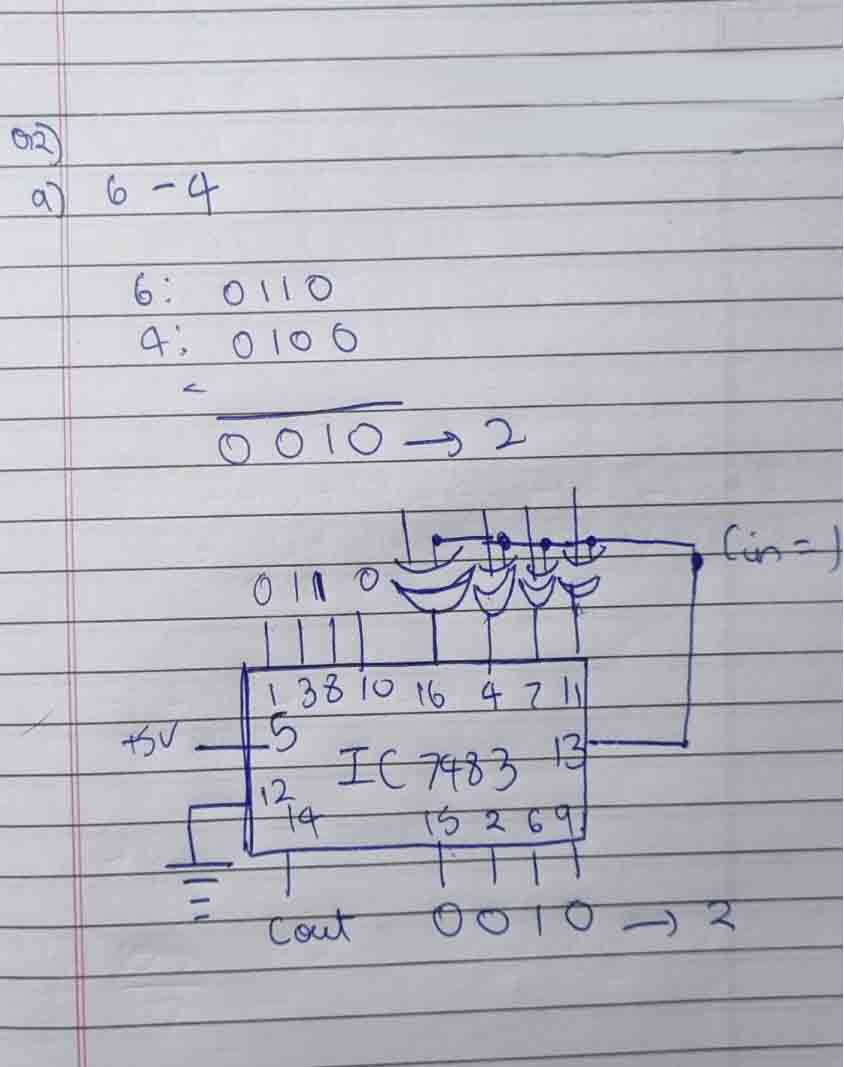 Q2)
a) 6 - 4
6: 0110
4: 0100
0010 → 2
Cin = 1
0 1 1 0
1 3 8 10 16 4 7 11
+5V 5
IC 7483 13
12
14 15 2 6 9
Cout 0 0 1 0 → 2